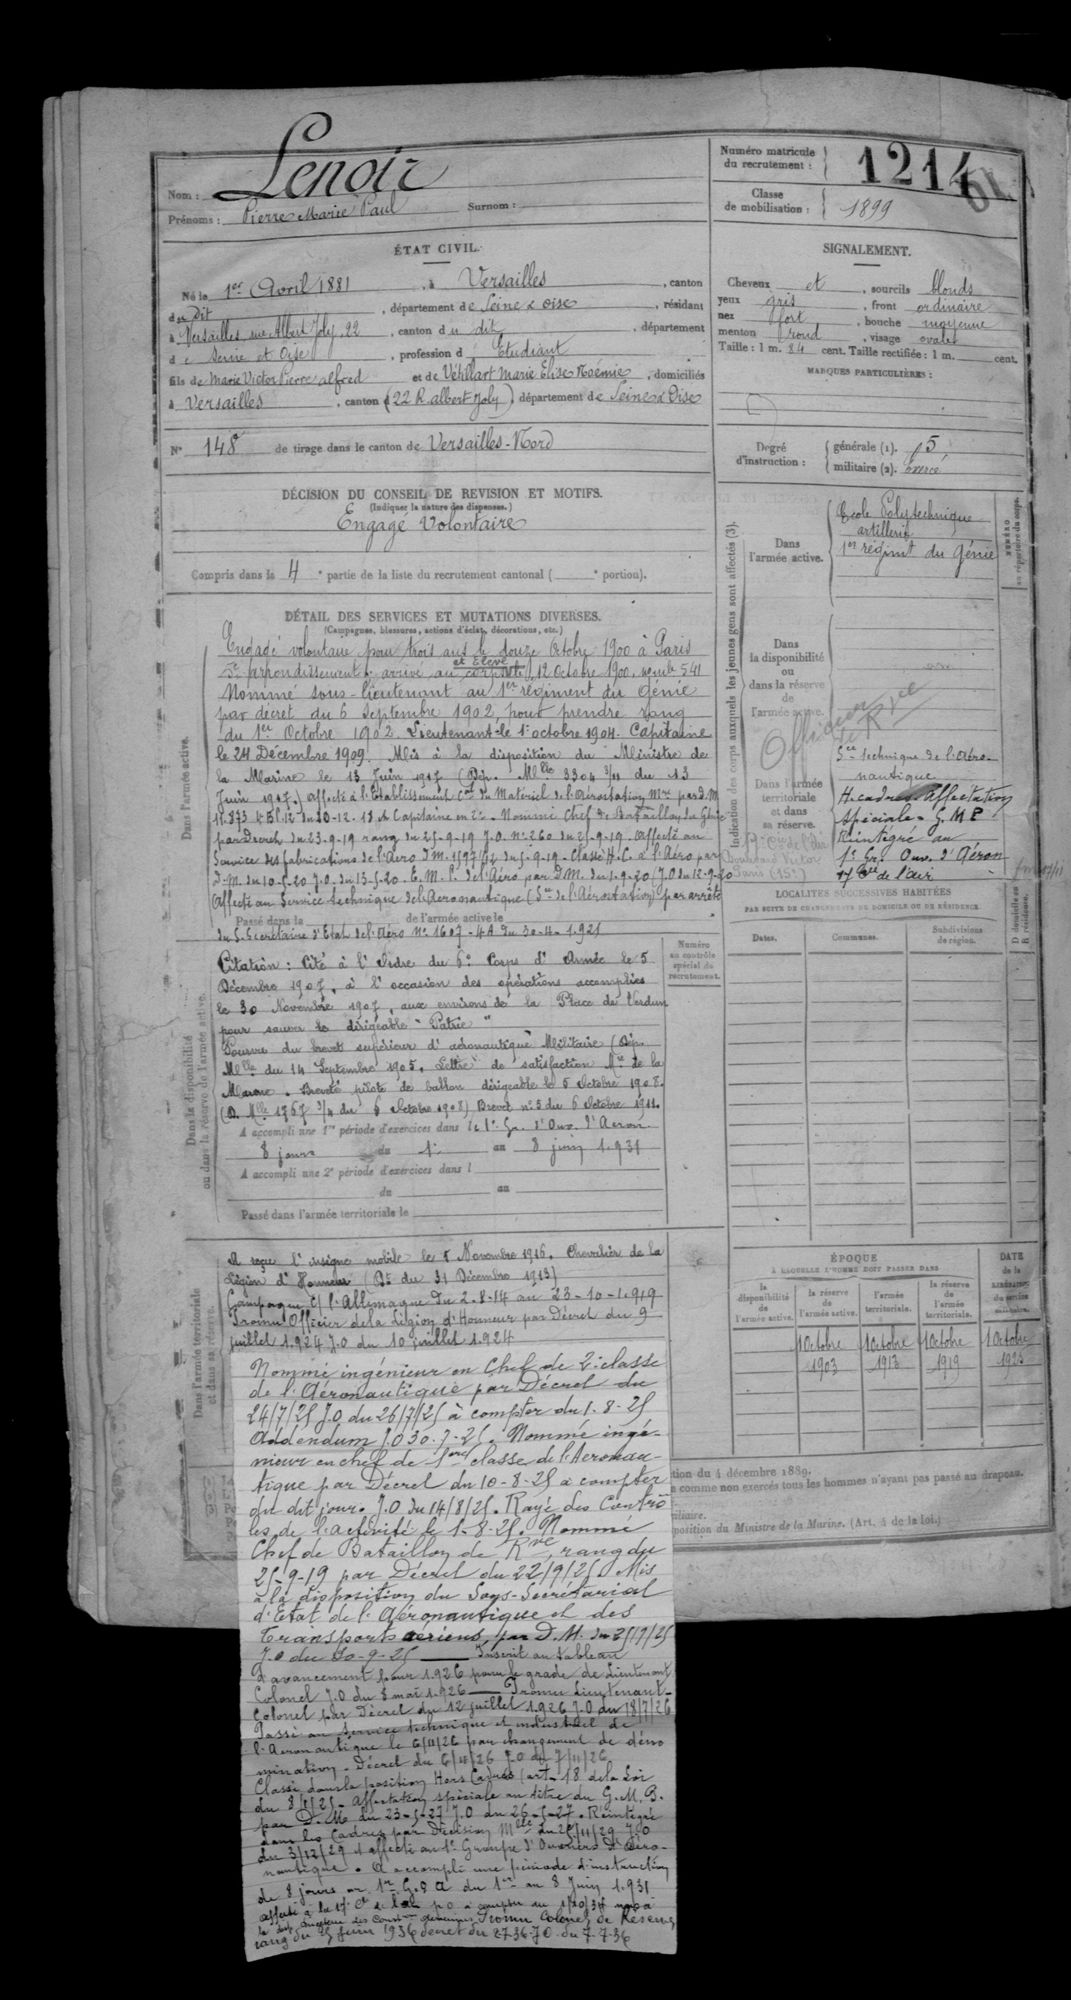 Nom : Lenoir
Prénoms : Pierre Marie Paul Surnom :
Numéro matricule du recrutement : 1214
Classe de mobilisation : 1899
ÉTAT CIVIL.
Né le 1er Avril 1881, à Versailles, canton
du Dit, département de Seine & Oise, résidant
à Versailles, rue Albert Joly, 22, canton du dit, département
de Seine et Oise, profession d Etudiant
fils de Marie Victor Pierre Alfred et de Vétillart Marie Elise Noémie, domiciliés
à Versailles, canton (22 R. albert Joly) département de Seine & Oise
N° 148 de tirage dans le canton de Versailles-Nord
SIGNALEMENT.
Cheveux et, sourcils blonds
yeux gris, front ordinaire
nez fort, bouche moyenne
menton rond, visage ovale
Taille : 1 m. 84 cent. Taille rectifiée : 1 m. cent.
MARQUES PARTICULIÈRES :
Degré d'instruction : générale (1). 5
militaire (2). Exercé
DÉCISION DU CONSEIL DE REVISION ET MOTIFS.
(Indiquer la nature des dispenses.)
Engagé Volontaire
Compris dans la 4e partie de la liste du recrutement cantonal ( e portion).
DÉTAIL DES SERVICES ET MUTATIONS DIVERSES.
(Campagnes, blessures, actions d'éclat, décorations, etc.)
Dans l'armée active.
Engagé volontaire pour trois ans le douze Octobre 1900 à Paris
5e arrondissement, arrivé au corps et Elève le 12 Octobre 1900, 541
Nommé sous-lieutenant au 1er régiment du Génie
par décret du 6 Septembre 1902, pour prendre rang
du 1er Octobre 1902. Lieutenant le 1er octobre 1904. Capitaine
le 24 Décembre 1909. Mis à la disposition du Ministre de
la Marine le 13 Juin 1917 (Dép. Mlle 3304 3/11 du 13
Juin 1917.) affecté à l'Etablissement Cal du Matériel de l'Aérostation Mre par D.M
du 20-12-18. Capitaine en 2e. Nommé Chef de Bataillon du Génie
par Decret du 23-9-19 rang du 25-9-19 J.O. N° 260 du 25-9-19. Affecté au
Service des fabrications de l'Aéro D.M. du 5-9-19. Classé H.C. à l'Aéro par
D.M. du 10-5-20 J.O. du 13-5-20. E.M.P. de l'Aéro par D.M. du 1-9-20 (J.O. du 12-9-20
(Affecté au Service technique de l'Aéronautique (Son de l'Aérostation) par arrêté
Passé dans la de l'armée active le
du S. Secrétaire d'Etat de l'Aéro N° 1607-4A du 30-4-1921
Dans la disponibilité ou dans la réserve de l'armée active.
Citation : Cité à l'Ordre du 6e Corps d'Armée le 5
Décembre 1907, à l'occasion des opérations accomplies
le 30 Novembre 1907, aux environs de la Place de Verdun
pour sauver le dirigeable "Patrie"
Pourvu du brevet supérieur d'aéronautique Militaire (Dép.
Mlle du 14 Septembre 1905. Lettre de satisfaction Mre de la
Marine. Breveté pilote de ballon dirigeable le 5 Octobre 1908.
(D. Mlle 1767 3/4 du 6 Octobre 1908) Brevet n° 5 du 6 Octobre 1911.
A accompli une 1re période d'exercices dans le 1er Gr. d'Ouv. d'Aéron.
8 jours du 1er au 8 juin 1931
A accompli une 2e période d'exercices dans l
du au
Passé dans l'armée territoriale le
Numéro au contrôle spécial du recrutement.
Dans l'armée territoriale et dans sa réserve.
A reçu l'insigne mobile le 5 Novembre 1916. Chevalier de la
Légion d'Honneur (Dt du 31 Décembre 1913)
Campagne c/ l'Allemagne du 2-8-14 au 23-10-1919
Promu Officier de la Légion d'Honneur par Décret du 9
juillet 1924 J.O du 10 juillet 1924
Nommé ingénieur en Chef de 2e classe
de l'Aéronautique par Décret du
24/7/25 J.O du 26/7/25 à compter du 1-8-25
Addendum J.O 30-7-25. Nommé ingé-
nieur en chef de 1ère classe de l'Aéronau-
tique par Décret du 10-8-25 à compter
du dit jour. J.O du 14/8/25. Rayé des Contrô
les de l'activité le 1-8-25. Nommé
Chef de Bataillon de Rve, rang du
25-9-19 par Décret du 22/9/25. Mis
à la disposition du Sous-Secrétariat
d'Etat de l'Aéronautique et des
Transports aériens, par D.M. du 25/9/25
J.O du 30-9-25 — Inscrit au tableau
d'avancement pour 1926 pour le grade de Lieutenant
Colonel J.O du 8 mai 1926 — Promu Lieutenant-
Colonel par Décret du 12 juillet 1926 J.O du 18/7/26
Passé au Service technique et industriel de
l'Aéronautique le 6/11/26 par changement de déno
mination. Décret du 6/11/26 J.O du 7/11/26
Classé dans la position Hors Cadres (art. 18 de la Loi
du 8/1/25. Affectation spéciale au titre du G.M.P.
par D.M du 23-5-27 J.O du 26-5-27. Réintégré
dans les Cadres par Décision Mlle du 25/11/29 J.O
du 3/12/29 et affecté au 1er Groupe d'Ouvriers d'Aéro-
nautique. A accompli une période d'instruction
de 8 jours au 1er G.O.A du 1er au 8 Juin 1931
affecté à la 17e Cie de l'air à compter du 1/10/34
Promu Colonel de Réserve
rang du 25 Juin 1936 décret du 27-36 J.O. du 7-7-36
Indication des corps auxquels les jeunes gens sont affectés (3).
Dans l'armée active.
Ecole Polytechnique
artillerie
1er régimt du Génie
NUMÉRO au répertoire du corps.
Dans la disponibilité ou dans la réserve de l'armée active.
Officier de Rve
Dans l'armée territoriale et dans sa réserve.
Son technique de l'Aéro-
nautique
H. cadres Affectation
Spéciale G.M.P
Réintégré au
1er Gr. Ouv. d'Aéron
17 Cie de l'air
Boulevard Victor
Paris (15e)
LOCALITÉS SUCCESSIVES HABITÉES
PAR SUITE DE CHANGEMENTS DE DOMICILE OU DE RÉSIDENCE.
Dates. Communes. Subdivisions de région. D domicile ou R résidence.
ÉPOQUE
À LAQUELLE L'HOMME DOIT PASSER DANS
la disponibilité de l'armée active. la réserve de l'armée active. l'armée territoriale. la réserve de l'armée territoriale. DATE de la LIBÉRATION du service militaire.
1 Octobre 1903 1 Octobre 1913 1 Octobre 1919 1 Octobre 1925
tion du 4 décembre 1889.
comme non exercés tous les hommes n'ayant pas passé au drapeau.
iliaire.
position du Ministre de la Marine. (Art. 4 de la loi.)